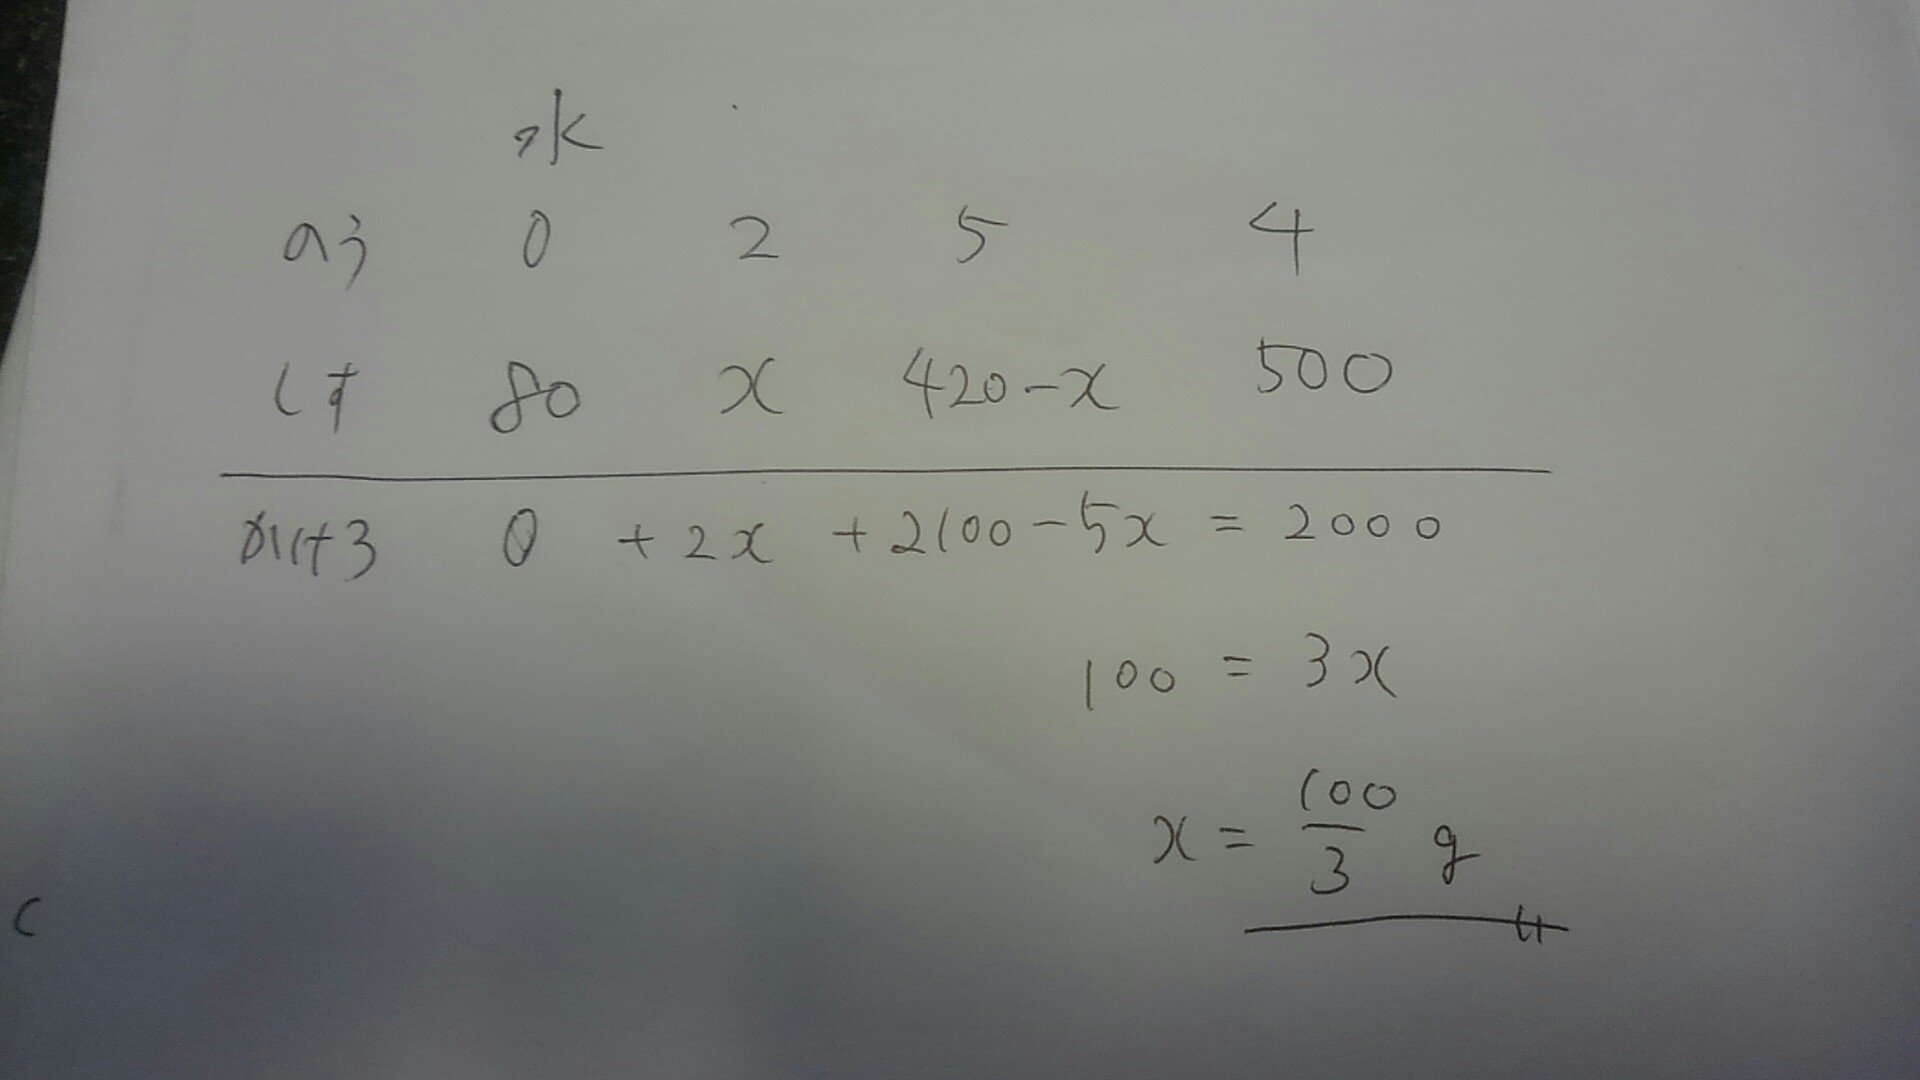 水
のう 0 2 5 4
しす 80 x 420-x 500
かける 0 + 2x + 2100 - 5x = 2000
100 = 3x
x = 100/3 g